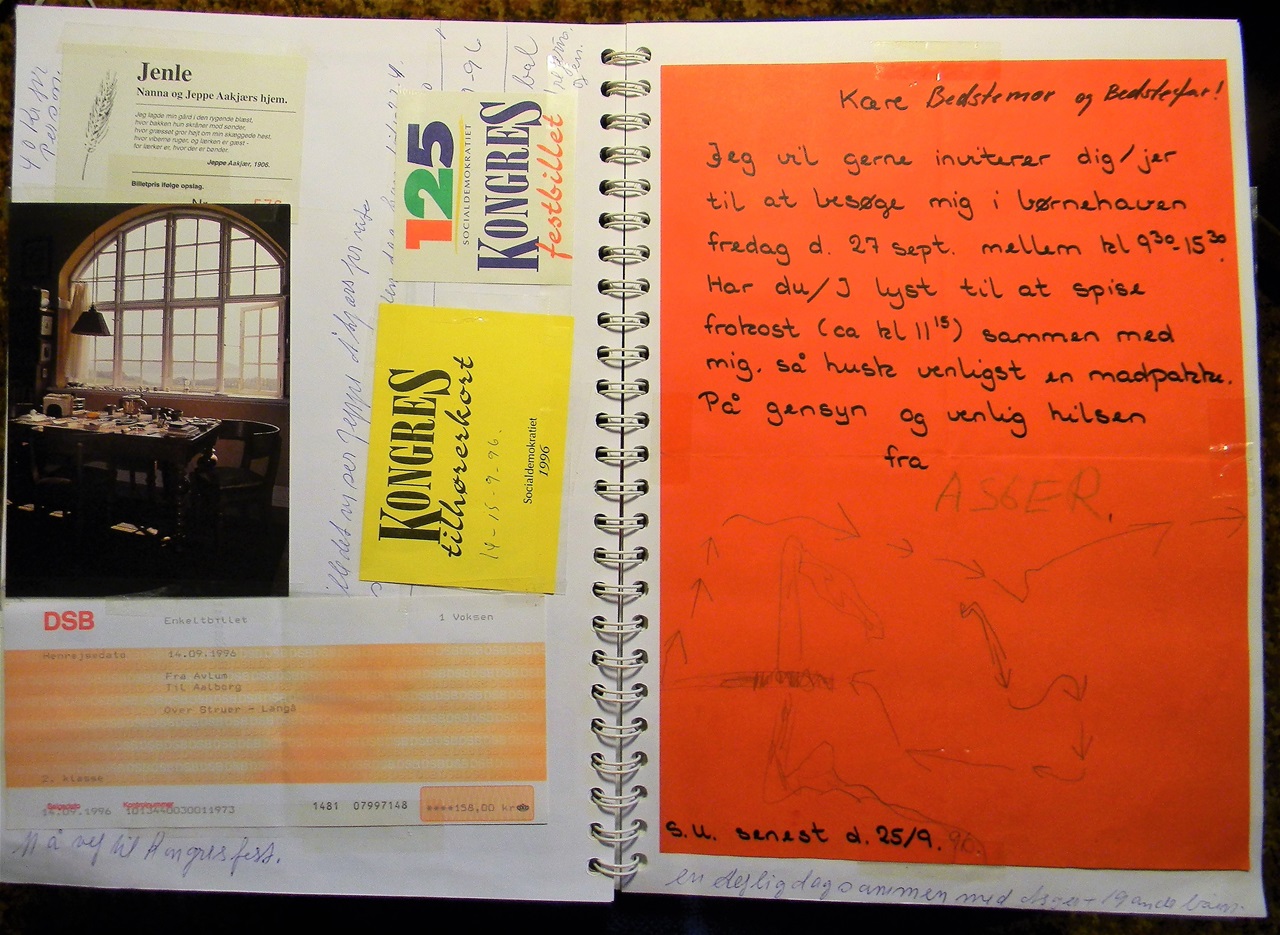 40 kr pr
person.
Jenle
Nanna og Jeppe Aakjærs hjem.
Jeg lagde min gård i den rygende blæst,
hvor bakken hun skråner mod sender,
hvor græsset gror højt om min skæggede hest,
hvor viberne ruger, og lærken er gæst -
for lærker er, hvor der er bønder.
Jeppe Aakjær, 1906.
Billetpris ifølge opslag.
Nr.
125
SOCIALDEMOKRATIET
KONGRES
festbillet
-96
bal
KONGRES
tilhørerkort
14-15-9-96.
Socialdemokratiet
1996
viser Jeppe
DSB
Enkeltbillet
1 Voksen
Henrejsedato 14.09.1996
Fra Avlum
Til Aalborg
Over Struer - Langå
2. klasse
Salgsdato Kontrolnummer
14.09.1996 1013440030011973
1481 07997148
****158,00 kr
På vej til Kongresfest.
Kære Bedstemor og Bedstefar!
Jeg vil gerne inviterer dig/jer
til at besøge mig i børnehaven
fredag d. 27 sept. mellem kl 9³⁰-15³⁰.
Har du/I lyst til at spise
frokost (ca kl 11¹⁵) sammen med
mig, så husk venligst en madpakke.
På gensyn og venlig hilsen
fra
ASGER.
S.U. senest d. 25/9. 96.
en dejlig dag sammen med Asger + 19 andre børn.